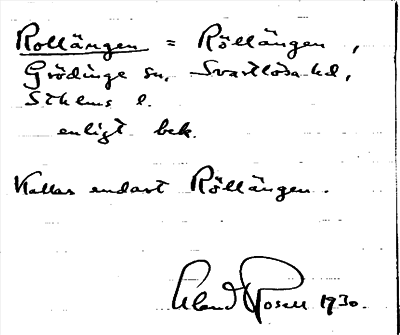 Rollängen = Röllängen,
Grödinge sn, Svartlösa hd,
Sthlms l.
enligt bek.
Kallas endast Röllängen.
Erland Rosell 1930.